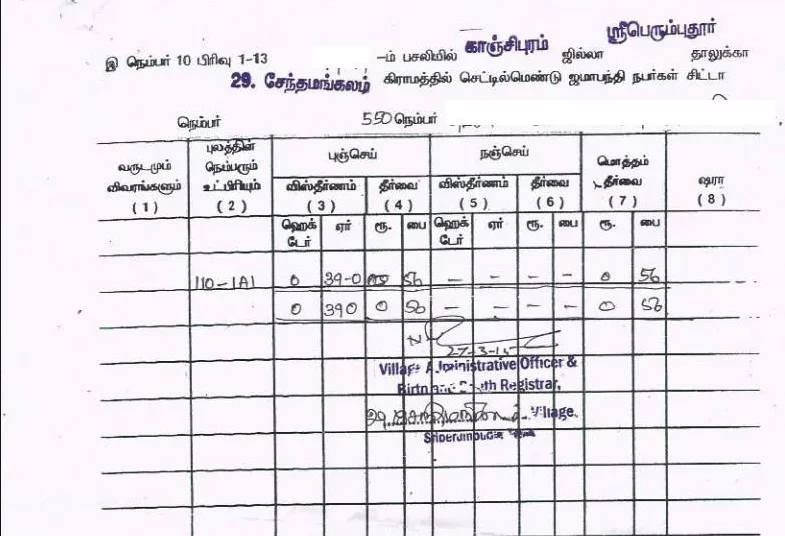 ஸ்ரீபெரும்புதூர்
இ நெம்பர் 10 பிரிவு 1-13 -ம் பசலியில் காஞ்சிபுரம் ஜில்லா தாலுக்கா
29. சேந்தமங்கலம் கிராமத்தில் செட்டில்மெண்டு ஜமாபந்தி நபர்கள் சிட்டா
நெம்பர் 550 நெம்பர்
வருடமும் விவரங்களும் (1)
புலத்தின் நெம்பரும் உட்பிரியும் (2)
புஞ்செய்
விஸ்தீர்ணம் (3) தீர்வை (4)
நஞ்செய்
விஸ்தீர்ணம் (5) தீர்வை (6)
மொத்தம் தீர்வை (7)
ஷரா (8)
ஹெக்டேர் ஏர் ரூ. பை ஹெக்டேர் ஏர் ரூ. பை ரூ. பை
110-1A1 0 39-0 56 - - - - 0 56
0 390 0 56 - - - - 0 56
27-3-15
Village Administrative Officer &
Birth and Death Registrar,
Village.
Sriperumpudur